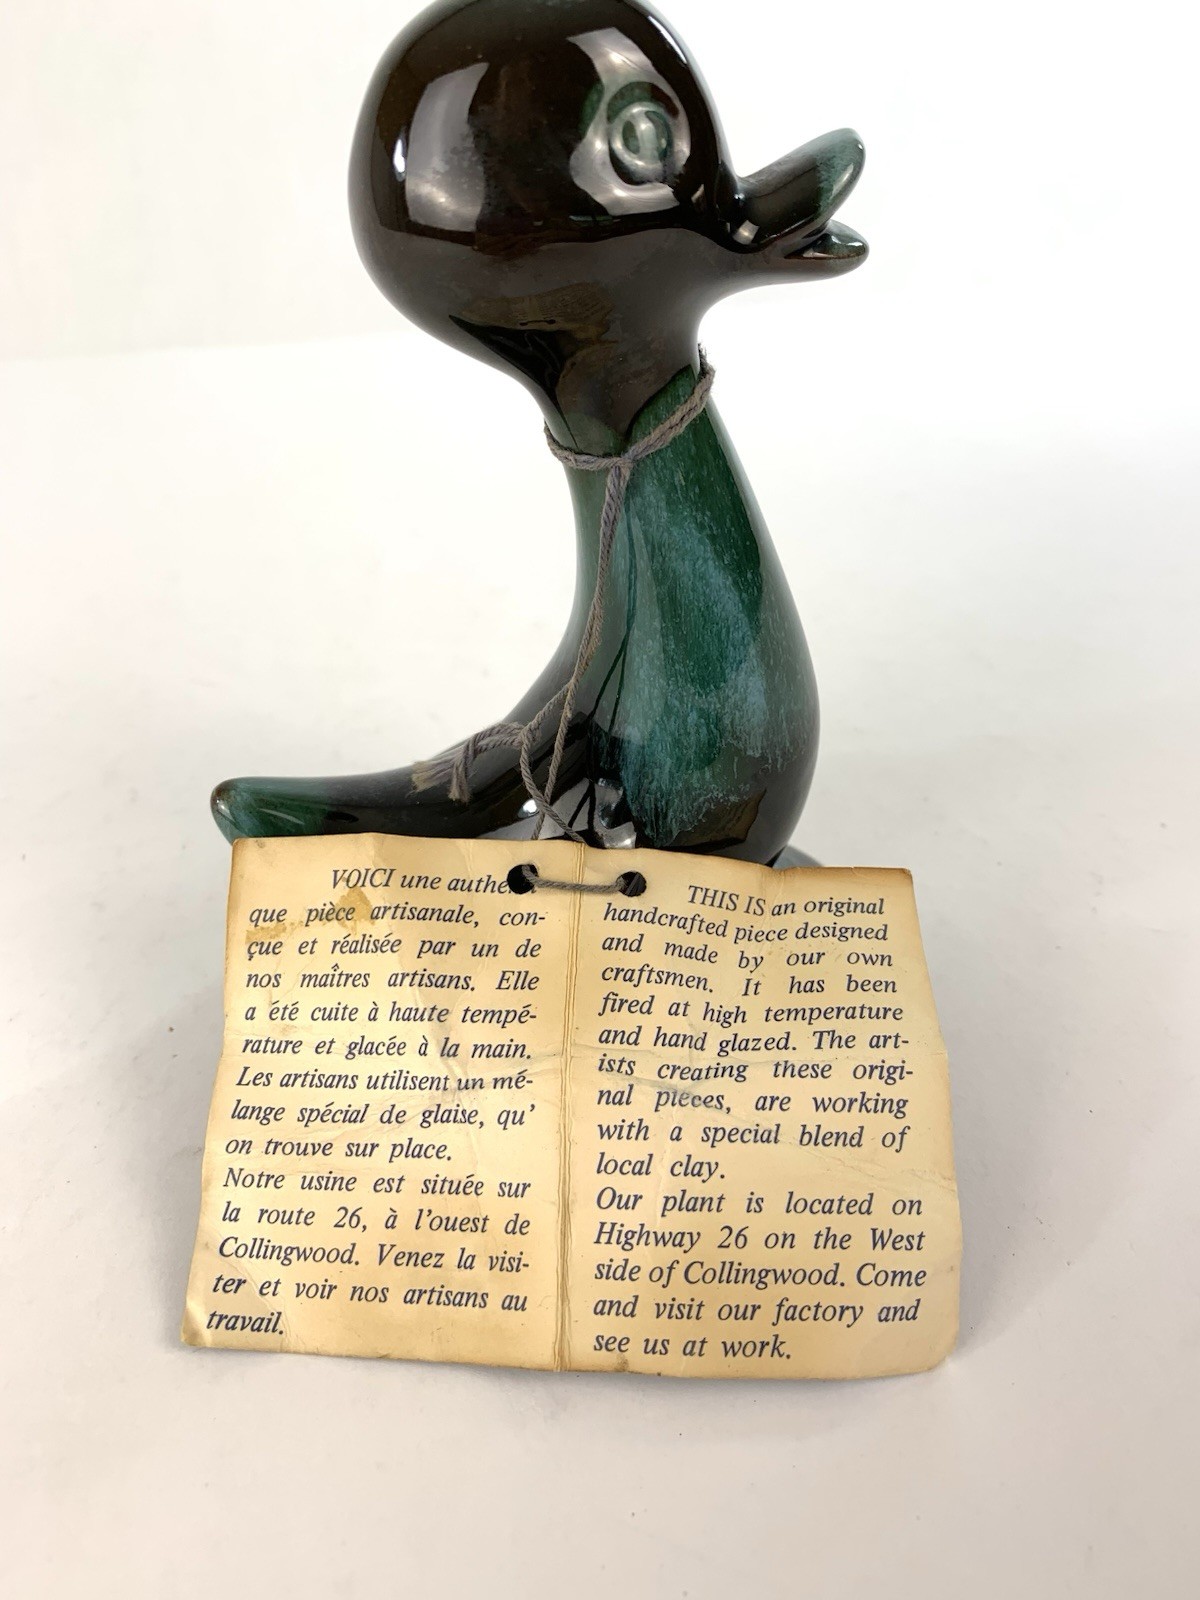 VOICI une
que pièce artisanale, con-
çue et réalisée par un de
nos maîtres artisans. Elle
a été cuite à haute tempé-
rature et glacée à la main.
Les artisans utilisent un mé-
lange spécial de glaise, qu'
on trouve sur place.
Notre usine est située sur
la route 26, à l'ouest de
Collingwood. Venez la visi-
ter et voir nos artisans au
travail.
THIS IS an original
handcrafted piece designed
and made by our own
craftsmen. It has been
fired at high temperature
and hand glazed. The art-
ists creating these origi-
nal pieces, are working
with a special blend of
local clay.
Our plant is located on
Highway 26 on the West
side of Collingwood. Come
and visit our factory and
see us at work.